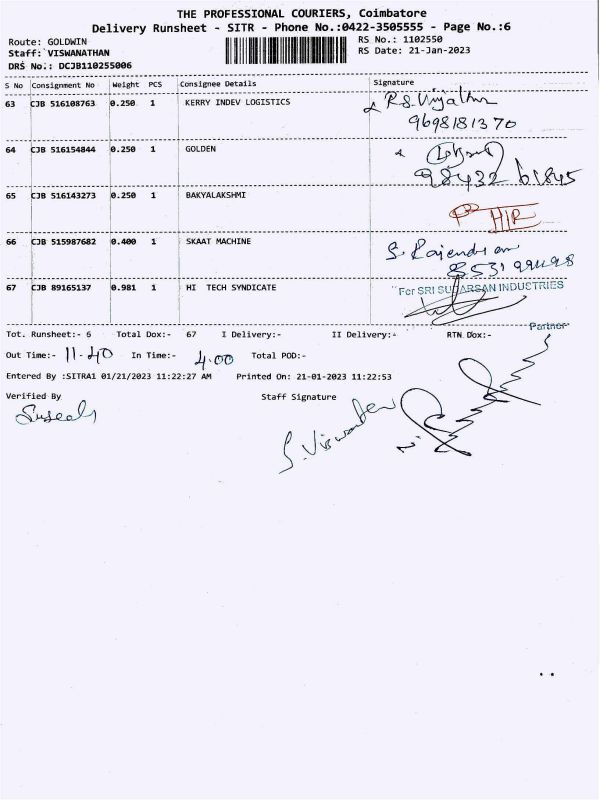 THE PROFESSIONAL COURIERS, Coimbatore
Delivery Runsheet - SITR - Phone No.:0422-3505555 - Page No.:6
Route: GOLDWIN RS No.: 1102550
Staff: VISWANATHAN RS Date: 21-Jan-2023
DRS No.: DCJB110255006
S No Consignment No Weight PCS Consignee Details Signature
63 CJB 516108763 0.250 1 KERRY INDEV LOGISTICS
9698181370
64 CJB 516154844 0.250 1 GOLDEN
98432 61845
65 CJB 516143273 0.250 1 BAKYALAKSHMI
66 CJB 515987682 0.400 1 SKAAT MACHINE S. Rajendran
67 CJB 89165137 0.981 1 HI TECH SYNDICATE For SRI SUDARSAN INDUCTRIES
Partner
Tot. Runsheet:- 6 Total Dox:- 67 I Delivery:- II Delivery:- RTN Dox:-
Out Time:- 11-40 In Time:- 4.00 Total POD:-
Entered By :SITRA1 01/21/2023 11:22:27 AM Printed On: 21-01-2023 11:22:53
Verified By Staff Signature
S. Viswanathan